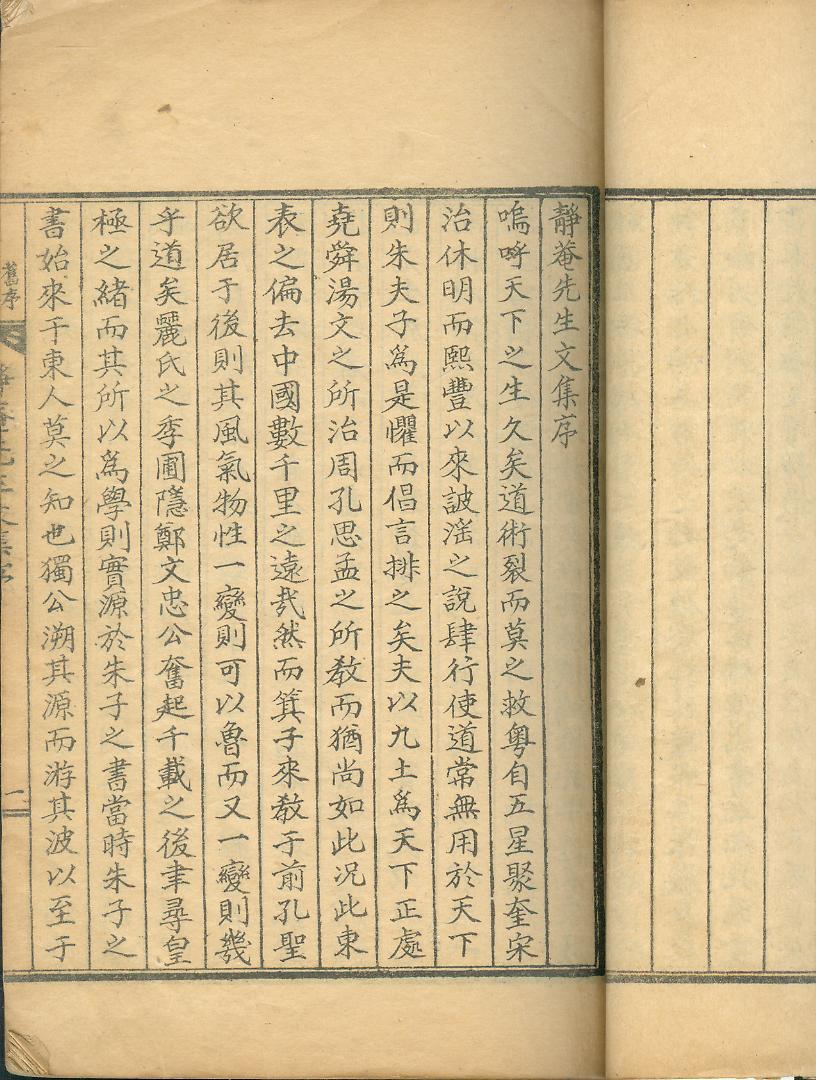 靜菴先生文集序
嗚呼天下之生久矣道術裂而莫之救粤自五星聚奎宋
治休明而熙豐以來詖滛之說肆行使道常無用於天下
則朱夫子爲是懼而倡言排之矣夫以九土爲天下正處
堯舜湯文之所治周孔思孟之所敎而猶尚如此况此東
表之偏去中國數千里之遠㢤然而箕子來敎于前孔聖
欲居于後則其風氣物性一變則可以魯而又一變則幾
乎道矣麗氏之季圃隱鄭文忠公奮起千載之後聿尋皇
極之緒而其所以爲學則實源於朱子之書當時朱子之
書始來于東人莫之知也獨公溯其源而游其波以至于
舊序
靜菴先生文集序
一